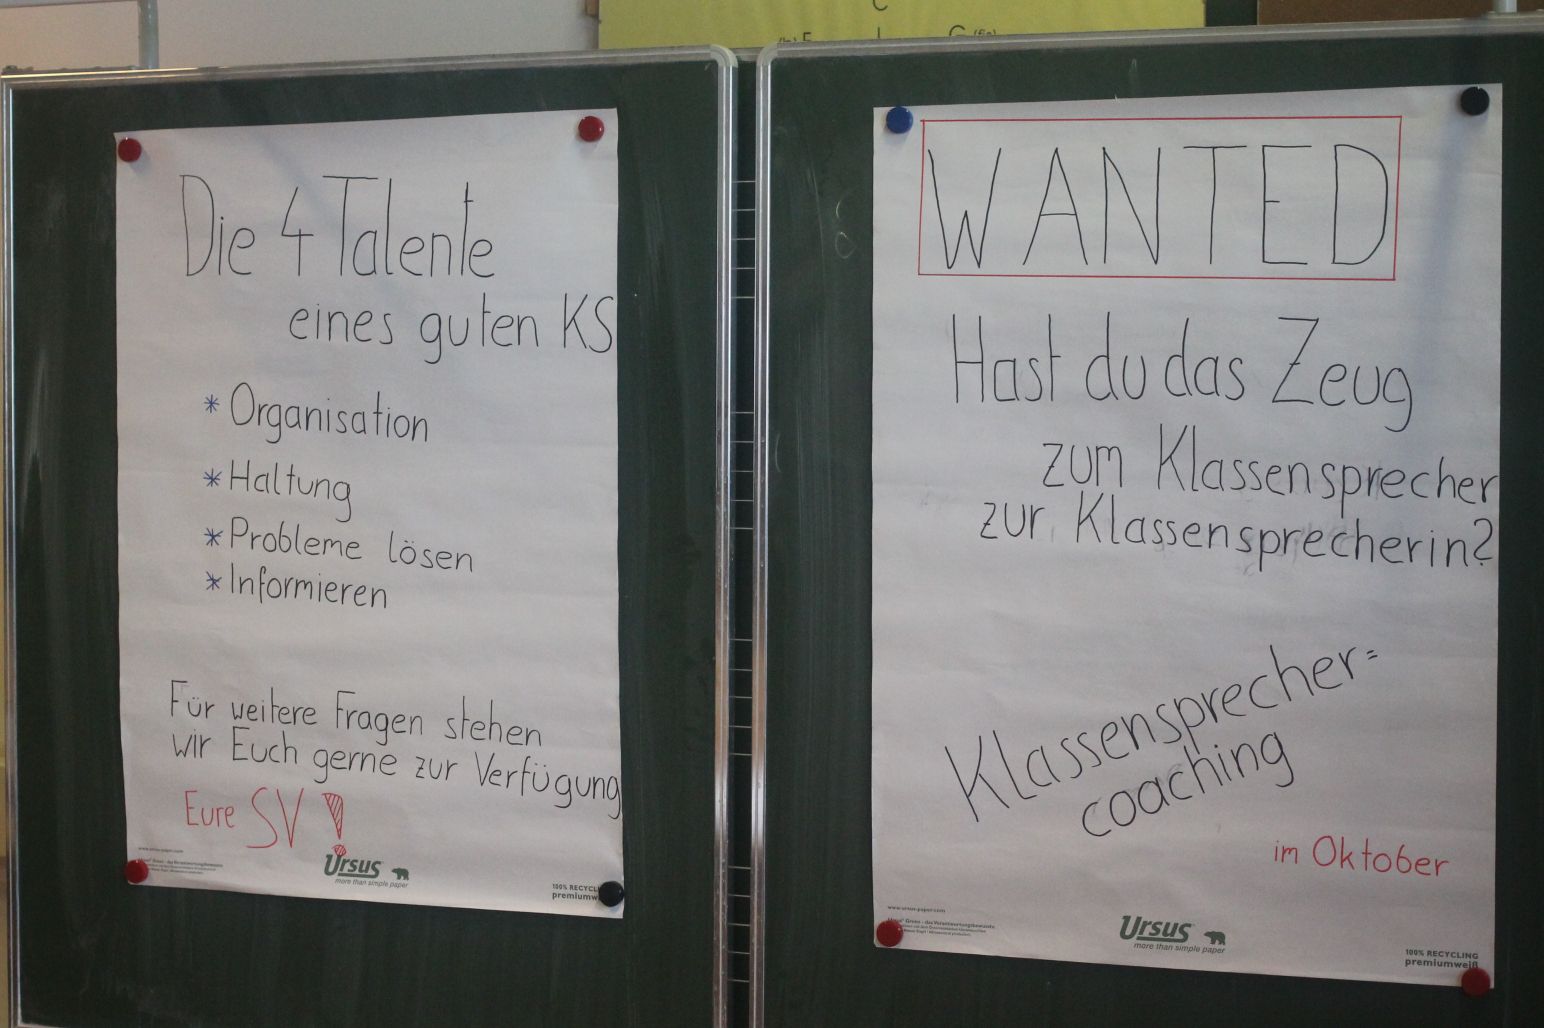 Die 4 Talente
eines guten KS
* Organisation
* Haltung
* Probleme lösen
* Informieren
Für weitere Fragen stehen
wir Euch gerne zur Verfügung
Eure SV!
www.ursus-paper.com
Ursus
more than simple paper
100% RECYCLI
premiumw
WANTED
Hast du das Zeug
zum Klassensprecher
zur Klassensprecherin?
Klassensprecher=
coaching
im Oktober
www.ursus-paper.com
Green - das Verantwortungsbewusste
Ursus
more than simple paper
100% RECYCLING
premiumweiß